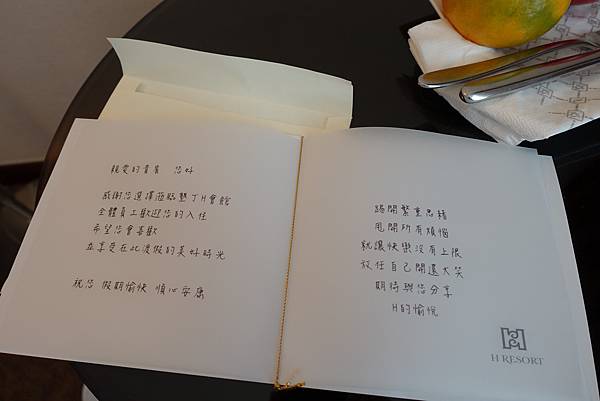 親愛的貴賓 您好
感謝您選擇蒞臨墾丁H會館
全體員工歡迎您的入住
希望您會喜歡
並享受在此渡假的美好時光
祝您 假期愉快 順心安康
踢開繁重思緒
甩開所有煩惱
就讓快樂沒有上限
放任自己開懷大笑
期待與您分享
H的愉悅
H RESORT